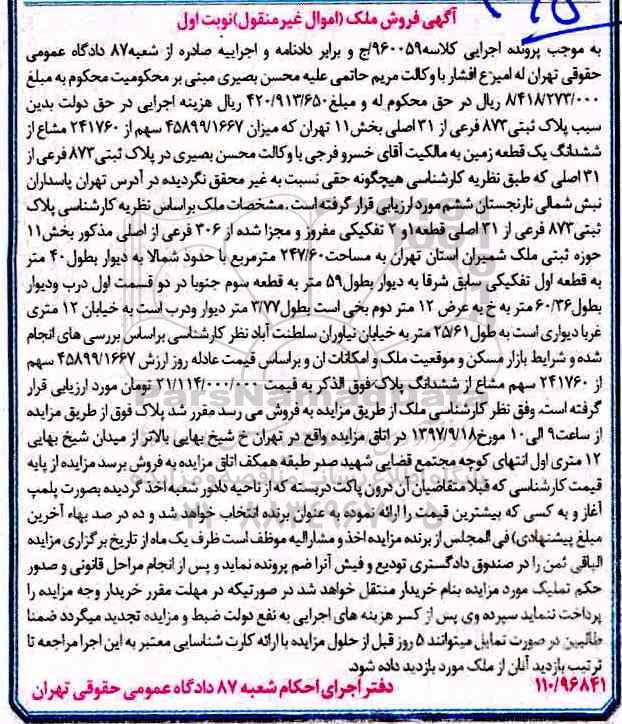 آگهی فروش ملک (اموال غیر منقول) نوبت اول
به موجب پرونده اجرایی کلاسه ۹۶۰۰۵۹/ج و برابر دادنامه و اجراییه صادره از شعبه ۸۷ دادگاه عمومی
حقوقی تهران له امیرزع افشار با وکالت مریم حاتمی علیه محسن بصیری مبنی بر محکومیت محکوم به مبلغ
۸/۴۱۸/۲۷۳/۰۰۰ ریال در حق محکوم له و مبلغ ۴۲۰/۹۱۳/۶۵۰ ریال هزینه اجرایی در حق دولت بدین
سبب پلاک ثبتی ۸۷۳ فرعی از ۳۱ اصلی بخش ۱۱ تهران که میزان ۴۵۸۹۹/۱۶۶۷ سهم از ۲۴۱۷۶۰ مشاع از
ششدانگ یک قطعه زمین به مالکیت آقای خسرو فرجی با وکالت محسن بصیری در پلاک ثبتی ۸۷۳ فرعی از
۳۱ اصلی که طبق نظریه کارشناسی هیچگونه حقی نسبت به غیر محقق نگردیده در آدرس تهران پاسداران
نبش شمالی نارنجستان ششم مورد ارزیابی قرار گرفته است. مشخصات ملک بر اساس نظریه کارشناسی پلاک
ثبتی ۸۷۳ فرعی از ۳۱ اصلی قطعه ۱ و ۲ تفکیکی مفروز و مجزا شده از ۳۰۶ فرعی از اصلی مذکور بخش ۱۱
حوزه ثبتی ملک شمیران استان تهران به مساحت ۲۴۷/۶۰ مترمربع با حدود شمالا به دیوار بطول ۴۰ متر
به قطعه اول تفکیکی سابق شرقا به دیوار بطول ۵۹ متر به قطعه سوم جنوبا در دو قسمت اول درب ودیوار
بطول ۶۰/۳۶ متر به خ به عرض ۱۲ متر دوم بخی است بطول ۳/۷۷ متر دیوار ودرب است به خیابان ۱۲ متری
غربا دیواری است به طول ۲۵/۶۱ متر به خیابان نیاوران سلطنت آباد نظر کارشناسی براساس بررسی های انجام
شده و شرایط بازار مسکن و موقعیت ملک و امکانات ان و براساس قیمت عادله روز ارزش ۴۵۸۹۹/۱۶۶۷ سهم
از ۲۴۱۷۶۰ سهم مشاع از ششدانگ پلاک فوق الذکر به قیمت ۲۱/۱۱۴/۰۰۰/۰۰۰ تومان مورد ارزیابی قرار
گرفته است. وفق نظر کارشناسی ملک از طریق مزایده به فروش می رسد مقرر شد پلاک فوق از طریق مزایده
از ساعت ۹ الی ۱۰ مورخ ۱۳۹۷/۹/۱۸ در اتاق مزایده واقع در تهران خ شیخ بهایی بالاتر از میدان شیخ بهایی
۱۲ متری اول انتهای کوچه مجتمع قضایی شهید صدر طبقه همکف اتاق مزایده به فروش برسد مزایده از پایه
قیمت کارشناسی که قبلا متقاضیان آن درون پاکت دربسته که از ناحیه دادور شعبه اخذ گردیده بصورت پلمپ
آغاز و به کسی که بیشترین قیمت را ارائه نموده به عنوان برنده انتخاب خواهد شد و ده در صد بهاء آخرین
مبلغ پیشنهادی) فی المجلس از برنده مزایده اخذ و مشارالیه موظف است ظرف یک ماه از تاریخ برگزاری مزایده
الباقی ثمن را در صندوق دادگستری تودیع و فیش آنرا ضم پرونده نماید و پس از انجام مراحل قانونی و صدور
حکم تملیک مورد مزایده بنام خریدار منتقل خواهد شد در صورتیکه در مهلت مقرر خریدار وجه مزایده را
پرداخت ننماید سپرده وی پس از کسر هزینه های اجرایی به نفع دولت ضبط و مزایده تجدید میگردد ضمنا
طالبین در صورت تمایل میتوانند ۵ روز قبل از حلول مزایده با ارائه کارت شناسایی معتبر به این اجرا مراجعه تا
ترتیب بازدید آنان از ملک مورد بازدید داده شود.
۱۱۰/۹۶۸۴۱ دفتر اجرای احکام شعبه ۸۷ دادگاه عمومی حقوقی تهران